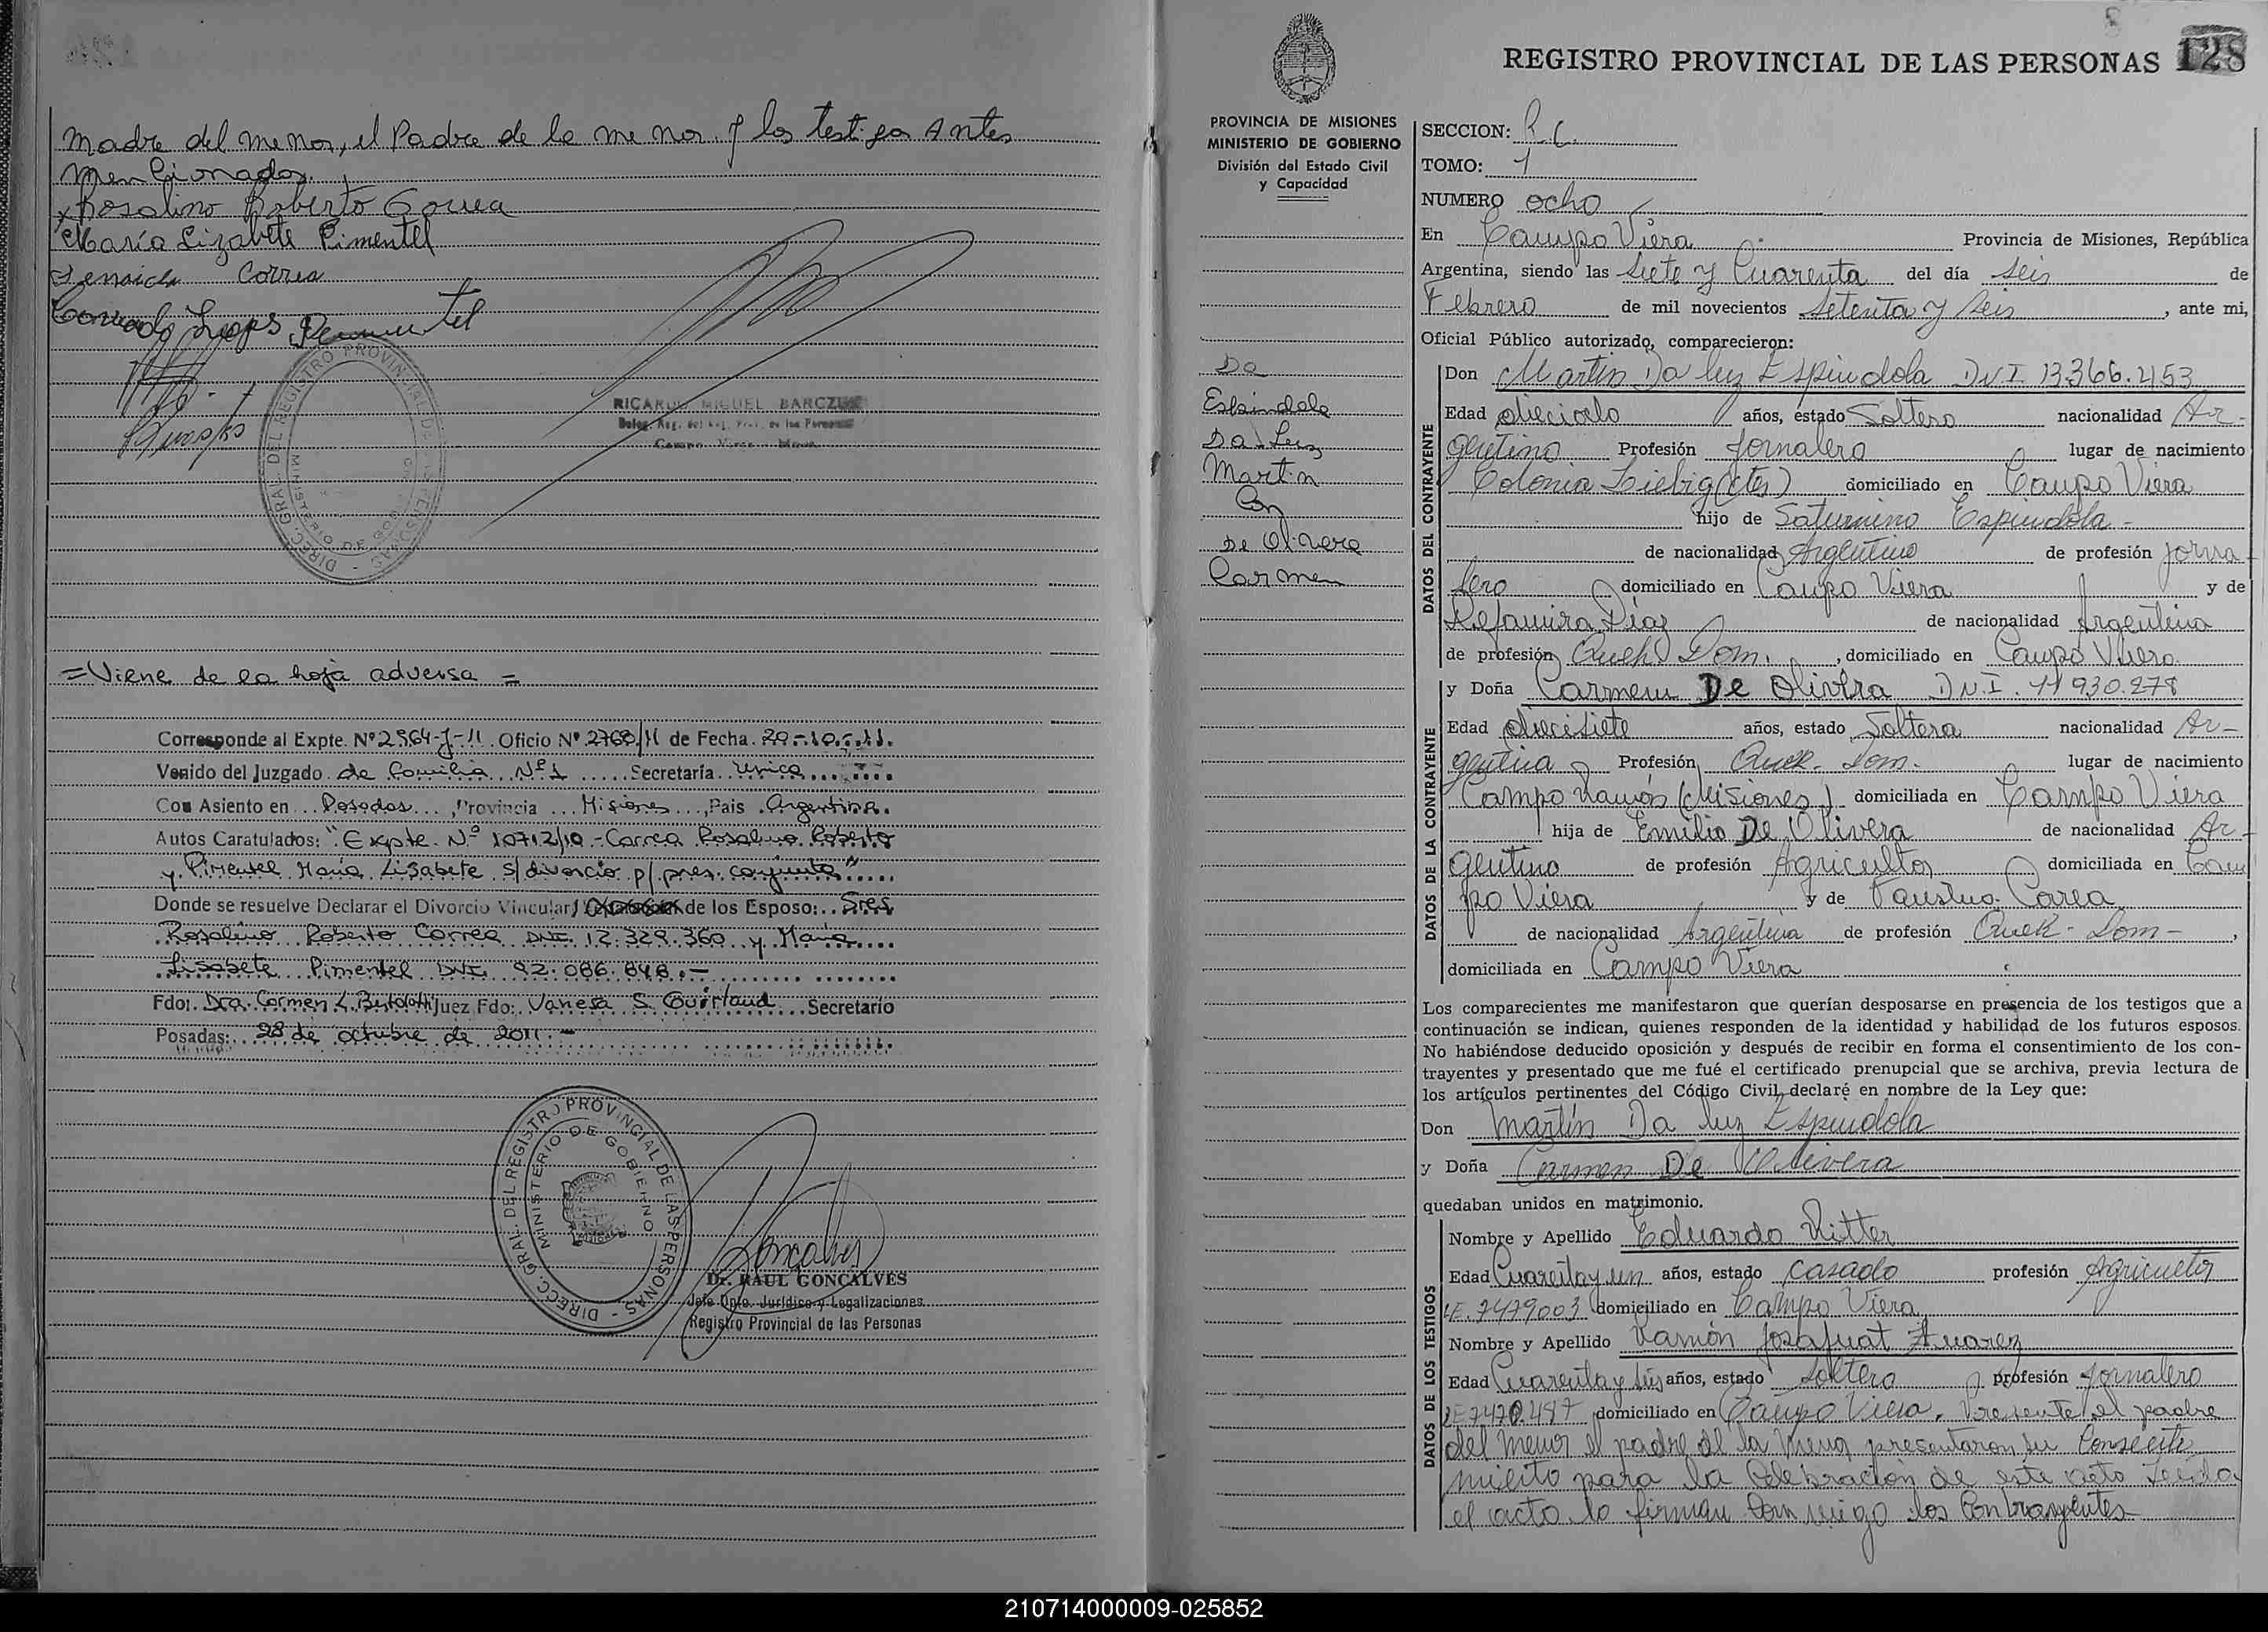 madre del menor, el Padre de la menor y los testigos Antes
mencionados.
x Rosalino Roberto Correa
Maria Lizabete Pimentel
Correa
Pimentel
DIREC. GRAL. DEL REGISTRO PROVINCIAL DE LAS PERSONAS - MINISTERIO DE GOB
RICARDO MIGUEL BARCZUK
Campo Viera - Mnes.
= Viene de la hoja adversa =
Corresponde al Expte. Nº 2964-J-11. Oficio Nº 2768/11 de Fecha. 20-10-11.
Venido del Juzgado de Familia Nº 1 Secretaría Unica
Con Asiento en Posadas, Provincia Misiones, Pais Argentina.
Autos Caratulados: "Expte. Nº 10712/10 - Correa Rosalino Roberto
y Pimentel Maria Lisabete s/ divorcio p/ pres. conjunta"
Donde se resuelve Declarar el Divorcio Vincular/ de los Esposo: Sres.
Rosalino Roberto Correa DNI. 12.329.360 y Maria
Lisabete Pimentel DNI. 92.086.848.-
Fdo. Dra. Carmen L. Bertolotti Juez Fdo: Vanesa S. Guirland Secretario
Posadas: 28 de octubre de 2011.-
DIRECC. GRAL. DEL REGISTRO PROVINCIAL DE LAS PERSONAS - MINISTERIO DE GOBIERNO
Dr. RAUL GONCALVES
Jefe Dpto. Jurídico y Legalizaciones
Registro Provincial de las Personas
8
REGISTRO PROVINCIAL DE LAS PERSONAS 128
PROVINCIA DE MISIONES
MINISTERIO DE GOBIERNO
División del Estado Civil
y Capacidad
Da
Espindola
Da Luz
Martin
Con
De Olivera
Carmen
SECCION: R.C.
TOMO: 1
NUMERO ocho
En Campo Viera Provincia de Misiones, República
Argentina, siendo las Siete y Cuarenta del día seis de
Febrero de mil novecientos Setenta y Seis, ante mi,
Oficial Público autorizado, comparecieron:
DATOS DEL CONTRAYENTE
Don Martin Da luz Espindola D.N.I. 13.366.453
Edad dieciocho años, estado Soltero nacionalidad Ar-
gentino Profesión Jornalero lugar de nacimiento
Colonia Liebig (Ctes) domiciliado en Campo Viera
hijo de Saturnino Espindola -
de nacionalidad Argentino de profesión Jorna
lero domiciliado en Campo Viera y de
Díaz de nacionalidad Argentina
de profesión Queh. Dom., domiciliado en Campo Viera
DATOS DE LA CONTRAYENTE
y Doña Carmen De Olivera D.N.I. 11.930.278
Edad diecisiete años, estado Soltera nacionalidad Ar-
gentina Profesión Queh. Dom. lugar de nacimiento
Campo Ramón (Misiones) domiciliada en Campo Viera
hija de Emilio De Olivera de nacionalidad Ar-
gentino de profesión Agricultor domiciliada en Cam
po Viera y de Faustina Correa
de nacionalidad Argentina de profesión Queh - Dom -,
domiciliada en Campo Viera
Los comparecientes me manifestaron que querían desposarse en presencia de los testigos que a
continuación se indican, quienes responden de la identidad y habilidad de los futuros esposos.
No habiéndose deducido oposición y después de recibir en forma el consentimiento de los con-
trayentes y presentado que me fué el certificado prenupcial que se archiva, previa lectura de
los artículos pertinentes del Código Civil, declaré en nombre de la Ley que:
Don Martín Da luz Espindola
y Doña Carmen De Olivera
quedaban unidos en matrimonio.
DATOS DE LOS TESTIGOS
Nombre y Apellido Eduardo Ritter
Edad Cuarenta y un años, estado casado profesión Agricultor
LE. 7479003 domiciliado en Campo Viera
Nombre y Apellido Ramón Josafuat Suarez
Edad Cuarenta y seis años, estado Soltero profesión Jornalero
LE 7470.497 domiciliado en Campo Viera. Presente el padre
del menor el padre de la menor presentaron su Consenti
miento para la Celebración de este acto Leida
el acto lo firman conmigo los Contrayentes
210714000009-025852